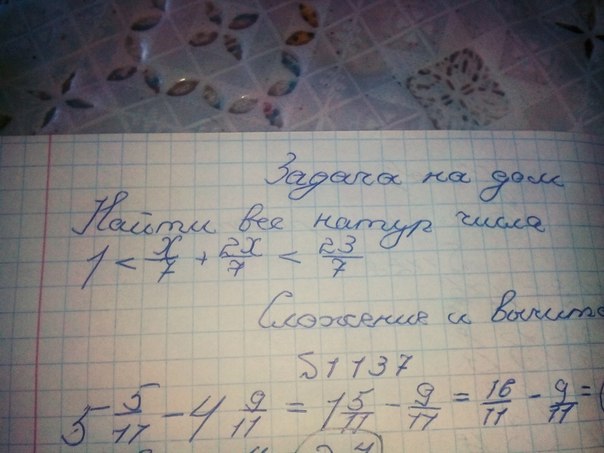 Задача на дом
Найти все натур числа
1 < x/7 + 2x/7 < 23/7
Сложение и вычита
51137
5 5/11 - 4 9/11 = 1 5/11 - 9/11 = 16/11 - 9/11 =